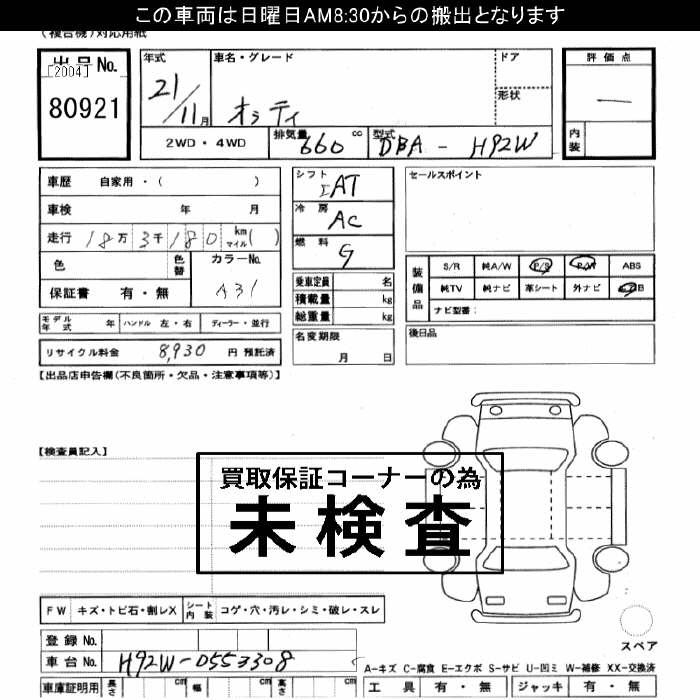 この車両は日曜日AM8:30からの搬出となります
(複合機)対応用紙
出品No.
[2004]
80921
年式
21/11月
車名・グレード
オッティ
ドア
形状
評価点
一
内装
2WD・4WD
排気量 660 cc
型式 DBA - H92W
車歴 自家用・( )
車検 年 月
走行 18万 3千 180 km マイル ( )
色
色替
カラーNo.
A31
保証書 有・無
シフト
AT
冷房
AC
燃料
G
乗車定員 名
積載量 kg
総重量 kg
セールスポイント
装備品
S/R 純A/W P/S P/W ABS
純TV 純ナビ 革シート 外ナビ B
ナビ型番:
モデル年式 年 ハンドル 左・右 ディーラー・並行
名変期限
月 日
後日品
リサイクル料金 8,930 円 預託済
【出品店申告欄(不良箇所・欠品・注意事項等)】
【検査員記入】
買取保証コーナーの為
未検査
FW キズ・トビ石・割レX シート内装 コゲ・穴・汚レ・シミ・破レ・スレ
登録 No.
車台 No. H92W-0553308
スペア
A-キズ C-腐食 E-エクボ S-サビ U-凹ミ W-補修 XX-交換済
車庫証明用 長さ cm 幅 cm 高さ cm
工具 有・無 ジャッキ 有・無